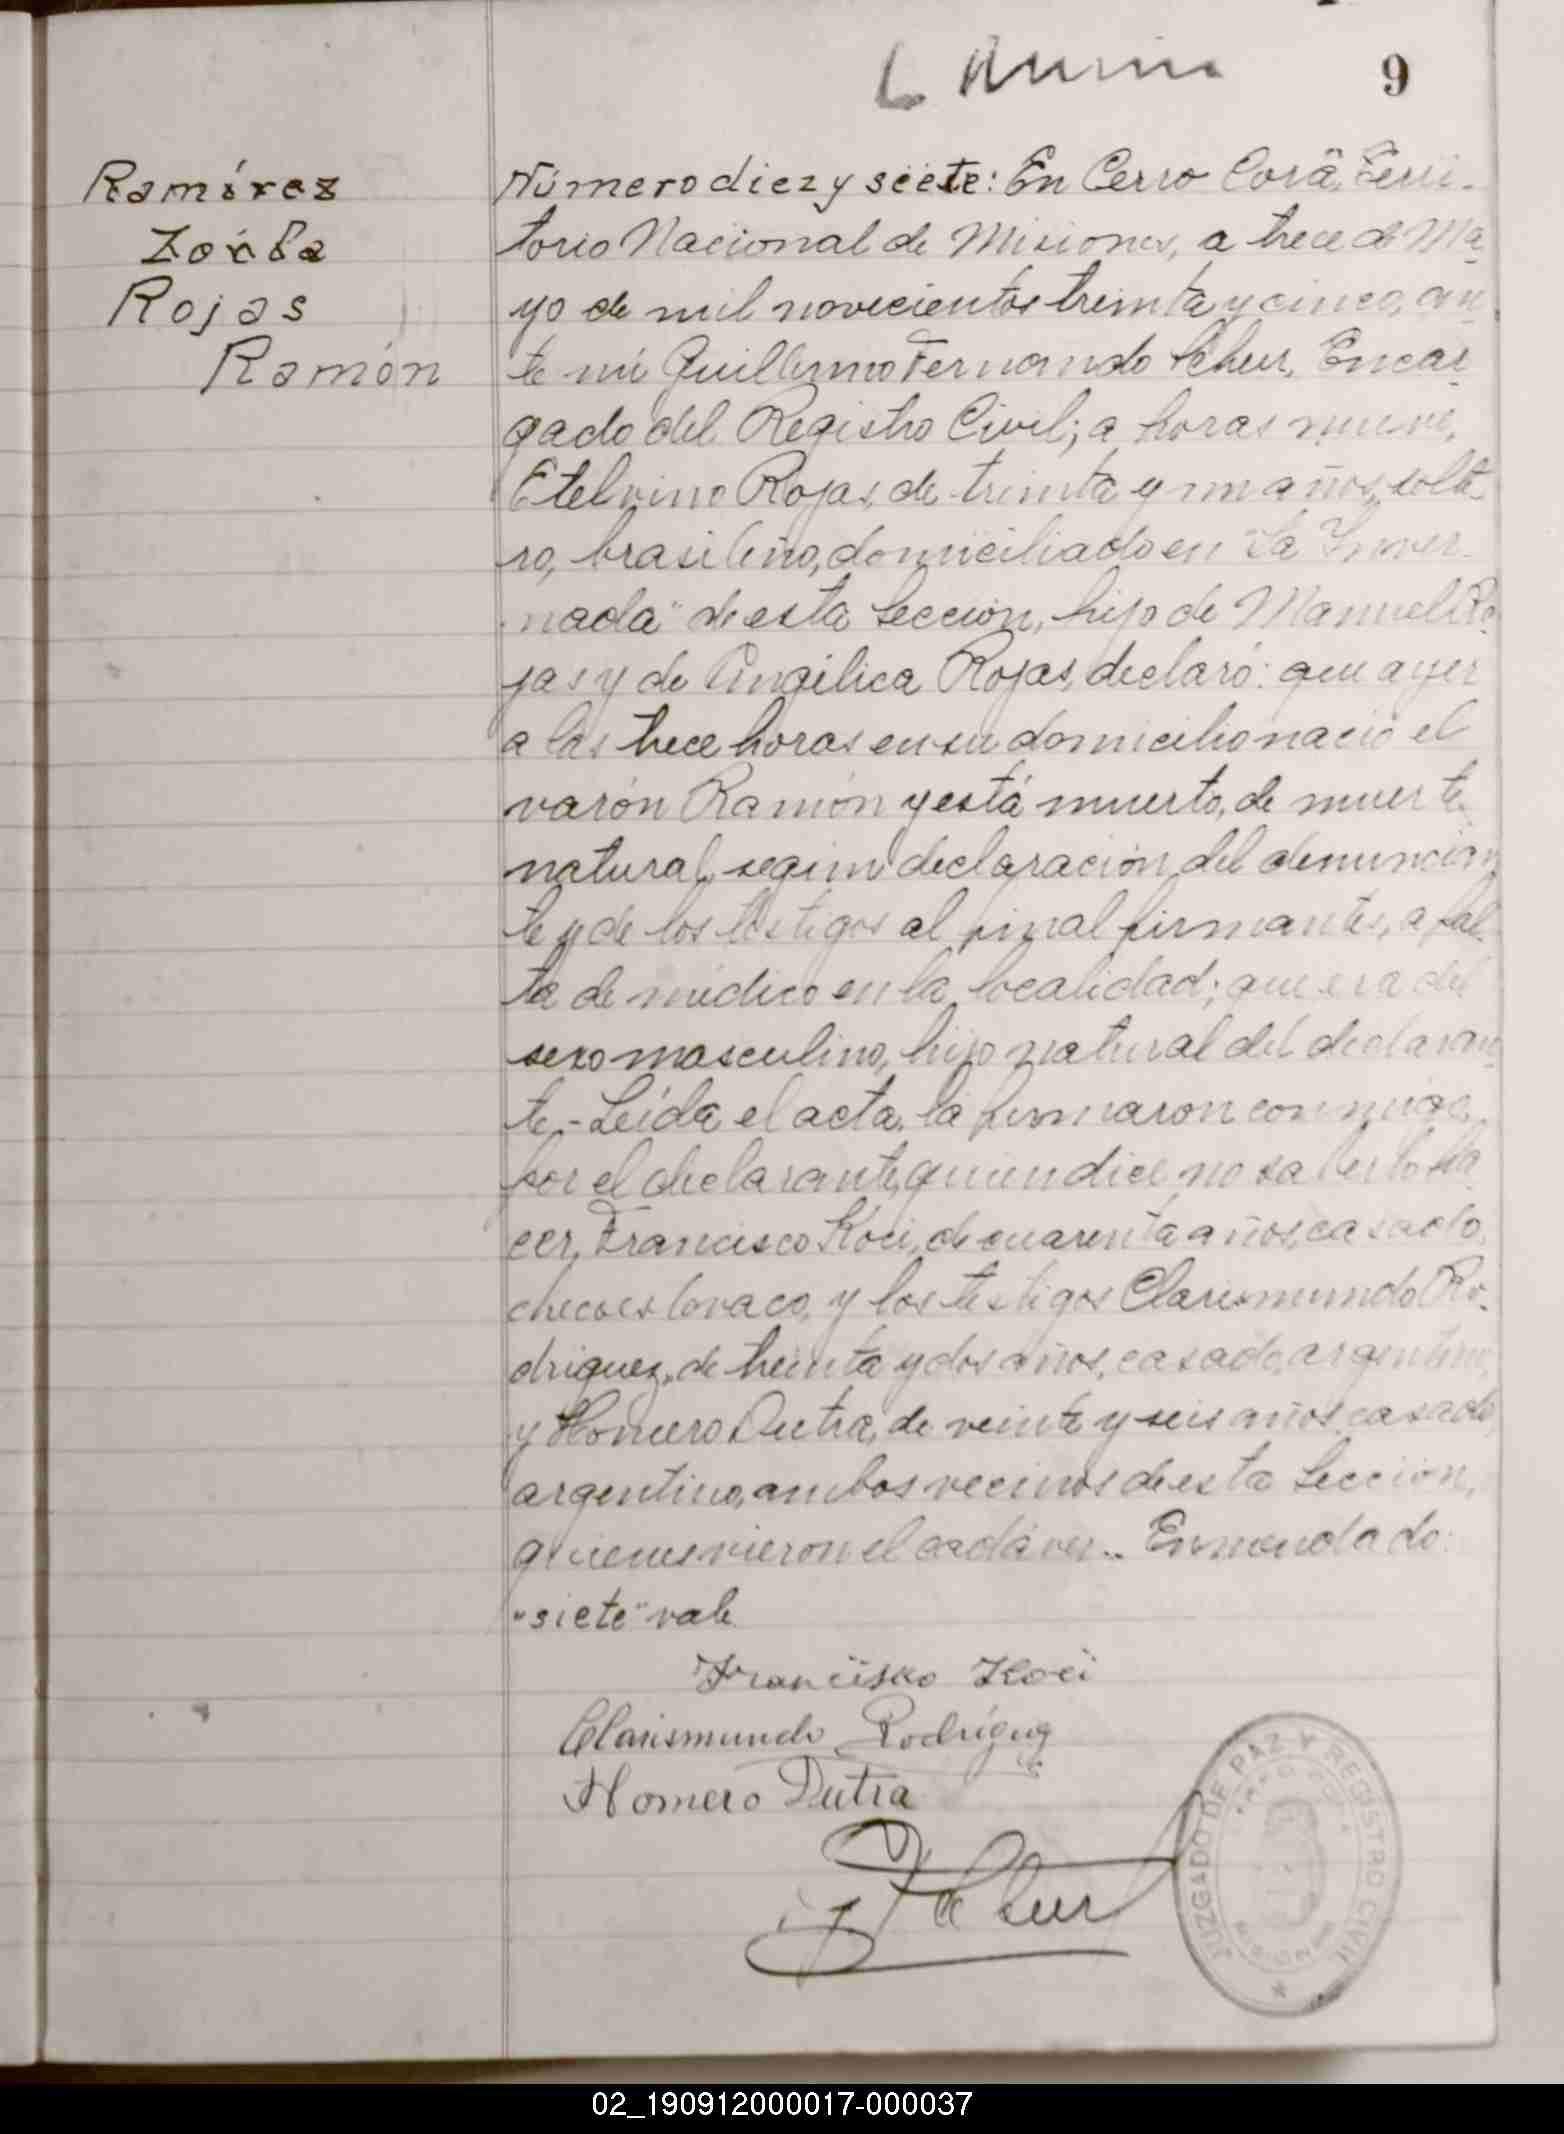 9
Ramírez
Rojas
Ramón
Número diez y siete: En Cerro Corá, Terri-
torio Nacional de Misiones, a trece de Ma-
yo de mil novecientos treinta y cinco, an-
te mí Guillermo Fernando Scheur, Encar-
gado del Registro Civil; a horas nueve,
Etelvino Rojas, de treinta y un años, solte-
ro, brasileño, domiciliado en "La Inver-
nada" de esta Sección, hijo de Manuel Ro-
jas y de Angélica Rojas, declaró: que ayer
a las trece horas en su domicilio nació el
varón Ramón y está muerto, de muerte
natural, según declaración del denuncian-
te y de los testigos al final firmantes, a fal-
ta de médico en la localidad; que era del
sexo masculino, hijo natural del declaran-
te.- Leída el acta, la firmaron conmigo,
por el declarante, quien dice no saberlo ha-
cer, Francisco Koci, de cuarenta años, casado,
checoeslovaco, y los testigos Clarismundo Ro-
driguez, de treinta y dos años, casado, argentino,
y Homero Dutra, de veinte y seis años, casado,
argentino, ambos vecinos de esta Sección,
quienes vieron el cadáver.. Enmendado:
"siete" vale
Francisko Koci
Clarismundo Rodríguez
Homero Dutra
JUZGADO DE PAZ Y REGISTRO CIVIL
02_190912000017-000037